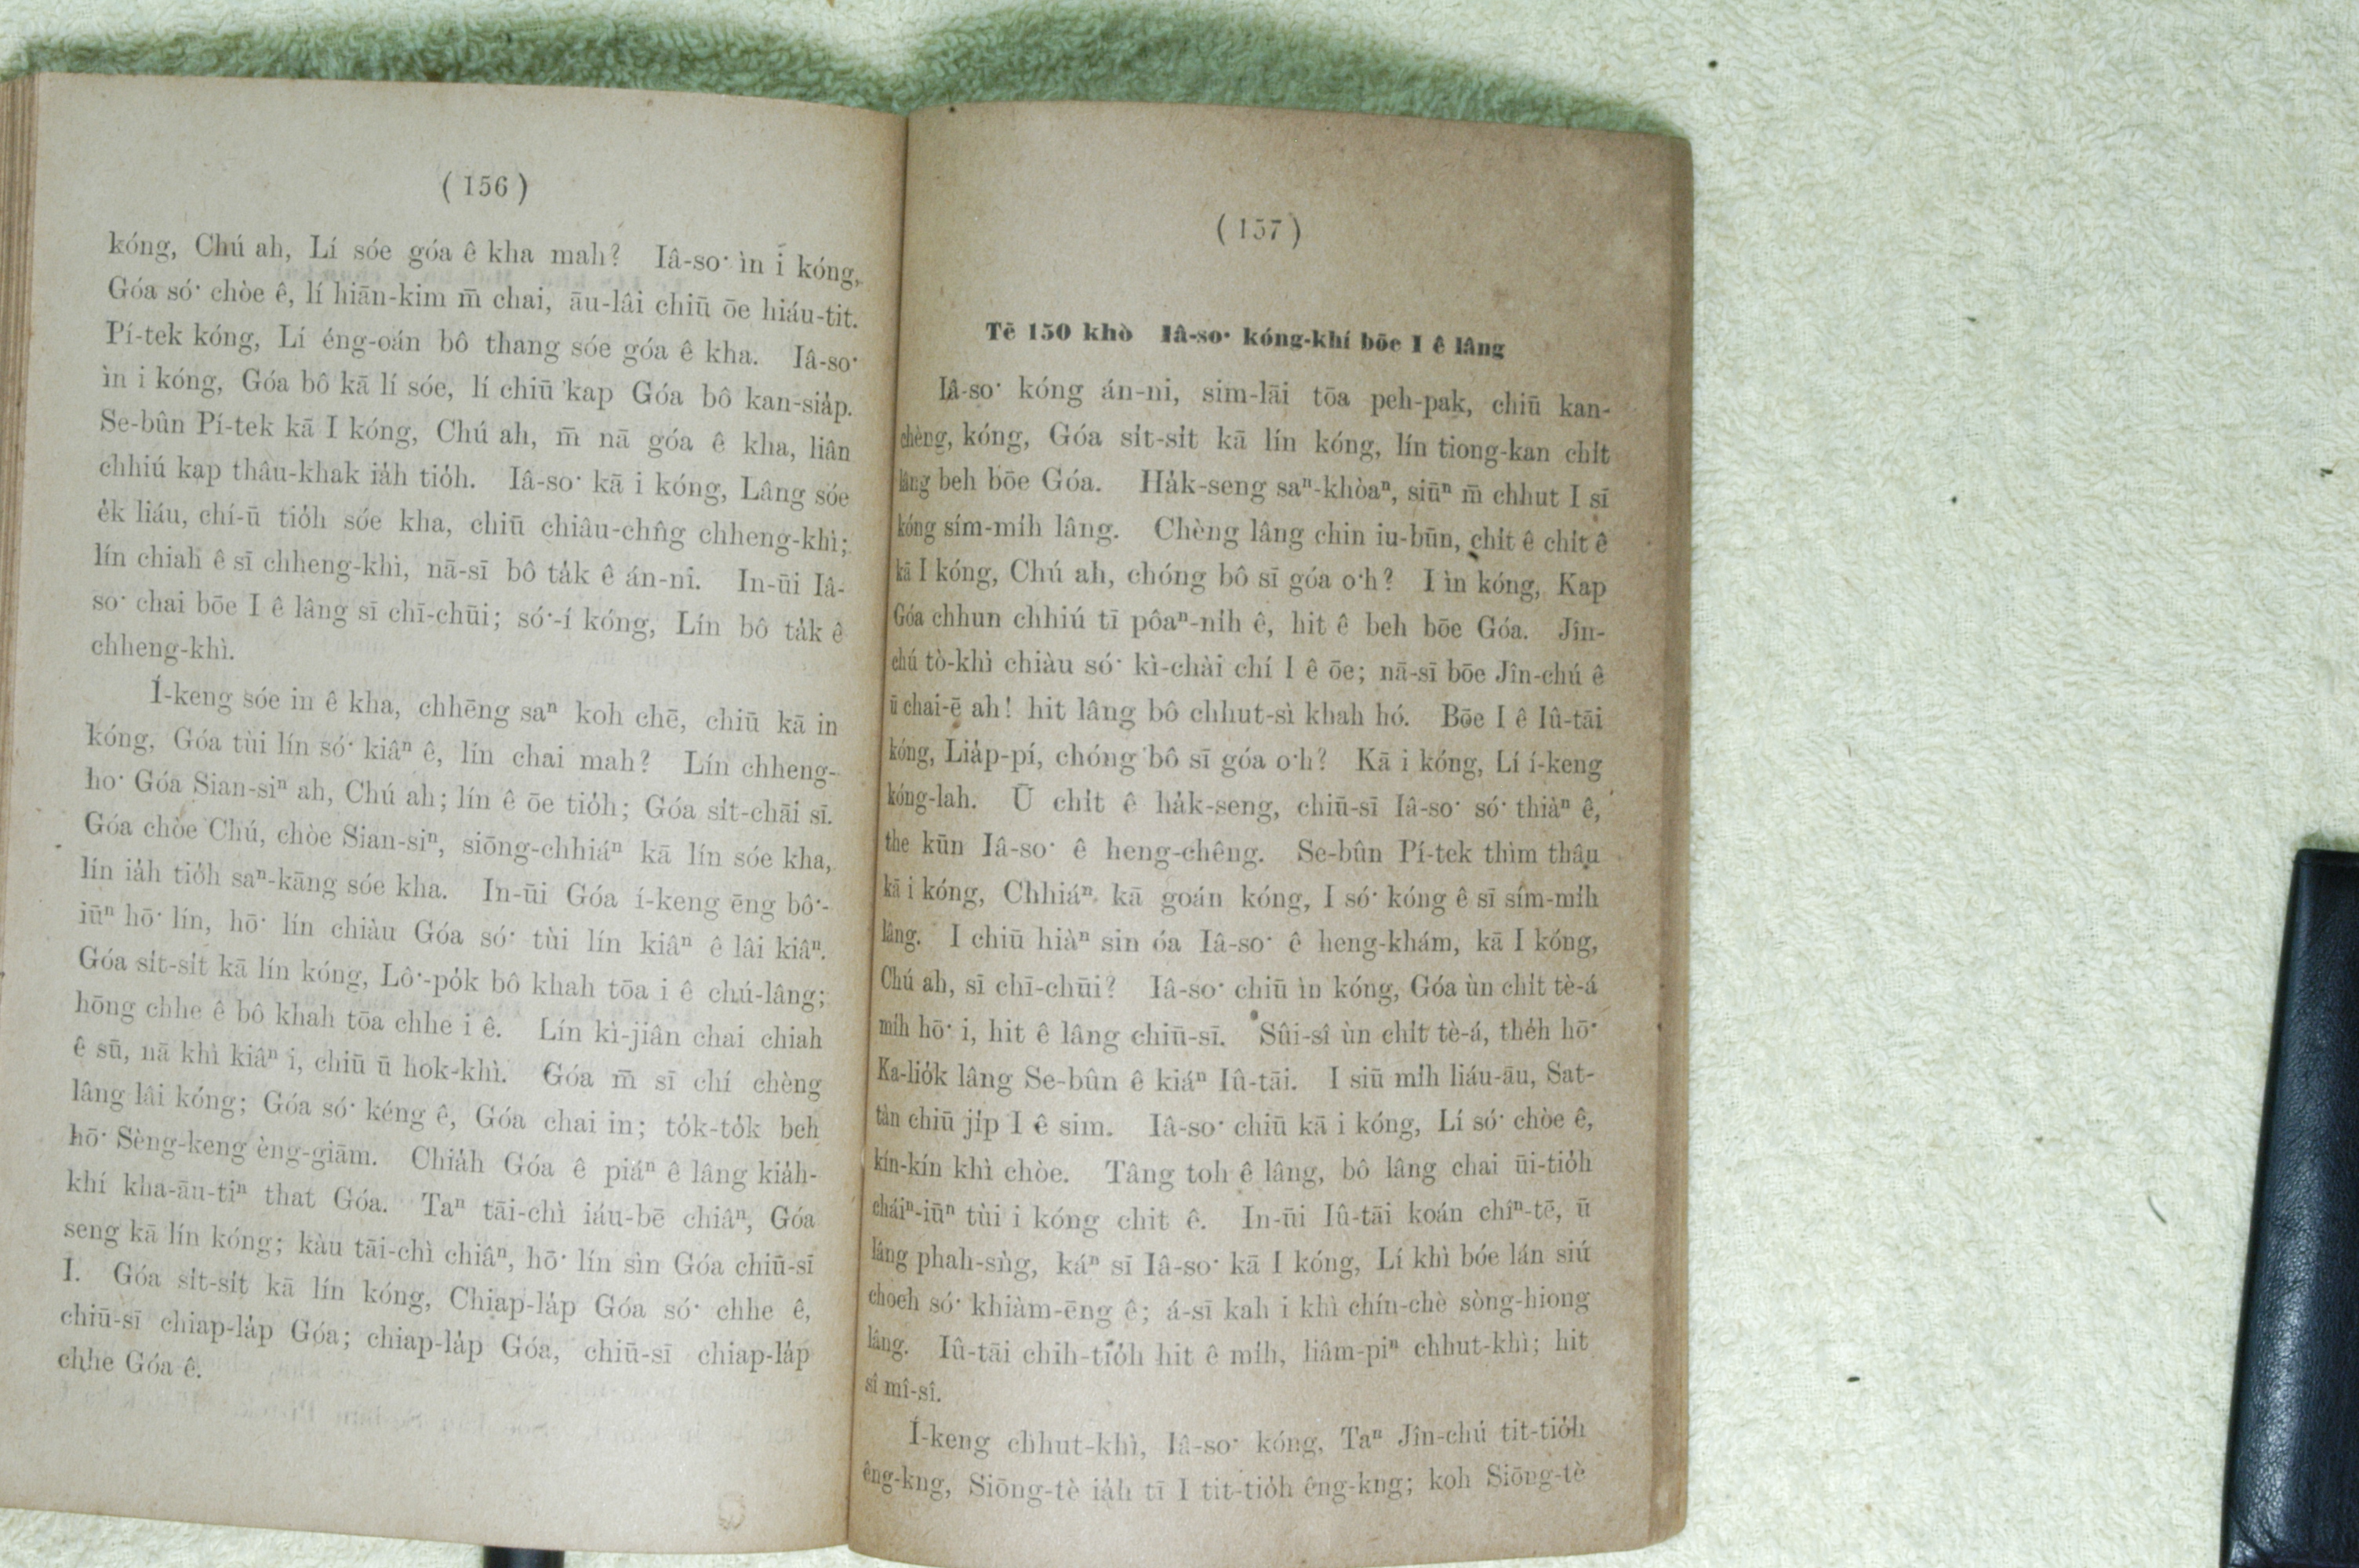 ( 156 )
kóng, Chú ah, Lí sóe góa ê kha mah? Iâ-so͘ ìn i kóng,
Góa só͘ chòe ê, lí hiān-kim m̄ chai, āu-lâi chiū ōe hiáu-tit.
Pí-tek kóng, Lí éng-oán bô thang sóe góa ê kha. Iâ-so͘
ìn i kóng, Góa bô kā lí sóe, lí chiū kap Góa bô kan-sia̍p.
Se-bûn Pí-tek kā I kóng, Chú ah, m̄ nā góa ê kha, liân
chhiú kap thâu-khak ia̍h tio̍h. Iâ-so͘ kā i kóng, Lâng sóe
e̍k liáu, chí-ū tio̍h sóe kha, chiū chiâu-chn̂g chheng-khì;
lín chiah ê sī chheng-khì, nā-sī bô ta̍k ê án-nî. In-ūi Iâ-
so͘ chai bōe I ê lâng sī chī-chūi; só͘-í kóng, Lín bô ta̍k ê
chheng-khì.
Í-keng sóe in ê kha, chhēng saⁿ koh chē, chiū kā in
kóng, Góa tùi lín só͘ kiâⁿ ê, lín chai mah? Lín chheng-
ho͘ Góa Sian-siⁿ ah, Chú ah; lín ê ōe tio̍h; Góa si̍t-chāi sī.
Góa chòe Chú, chòe Sian-siⁿ, siōng-chhiáⁿ kā lín sóe kha,
lín ia̍h tio̍h saⁿ-kāng sóe kha. In-ūi Góa í-keng ēng bô͘-
iūⁿ hō͘ lín, hō͘ lín chiàu Góa só͘ tùi lín kiâⁿ ê lâi kiâⁿ.
Góa si̍t-si̍t kā lín kóng, Lô͘-po̍k bô khah tōa i ê chú-lâng;
hōng chhe ê bô khah tōa chhe i ê. Lín kì-jiân chai chiah
ê sū, nā khì kiâⁿ i, chiū ū hok-khì. Góa m̄ sī chí chèng
lâng lâi kóng; Góa só͘ kéng ê, Góa chai in; to̍k-to̍k beh
hō͘ Sèng-keng èng-giām. Chia̍h Góa ê piáⁿ ê lâng kia̍h-
khí kha-āu-tiⁿ that Góa. Taⁿ tāi-chì iáu-bē chiâⁿ, Góa
seng kā lín kóng; kàu tāi-chì chiâⁿ, hō͘ lín sìn Góa chiū-sī
I. Góa si̍t-si̍t kā lín kóng, Chiap-la̍p Góa só͘ chhe ê,
chiū-sī chiap-la̍p Góa; chiap-la̍p Góa, chiū-sī chiap-la̍p
chhe Góa ê.
( 157 )
Tē 150 khò Iâ-so͘ kóng-khí bōe I ê lâng
Iâ-so͘ kóng án-ni, sim-lāi tōa peh-pak, chiū kan-
chèng, kóng, Góa si̍t-si̍t kā lín kóng, lín tiong-kan chi̍t
lâng beh bōe Góa. Ha̍k-seng saⁿ-khòaⁿ, siūⁿ m̄ chhut I sī
kóng sím-mi̍h lâng. Chèng lâng chin iu-būn, chi̍t ê chi̍t ê
kā I kóng, Chú ah, chóng bô sī góa o͘h? I ìn kóng, Kap
Góa chhun chhiú tī pôaⁿ-ni̍h ê, hit ê beh bōe Góa. Jîn-
chú tò-khì chiàu só͘ kì-chài chí I ê ōe; nā-sī bōe Jîn-chú ê
ū chai-ē ah! hit lâng bô chhut-sì khah hó. Bōe I ê Iû-tāi
kóng, Lia̍p-pí, chóng bô sī góa o͘h? Kā i kóng, Lí í-keng
kóng-lah. Ū chi̍t ê ha̍k-seng, chiū-sī Iâ-so͘ só͘ thiàⁿ ê,
the kūn Iâ-so͘ ê heng-chêng. Se-bûn Pí-tek thìm thâu
kā i kóng, Chhiáⁿ kā goán kóng, I só͘ kóng ê sī sím-mi̍h
lâng. I chiū hiàⁿ sin óa Iâ-so͘ ê heng-khám, kā I kóng,
Chú ah, sī chī-chūi? Iâ-so͘ chiū ìn kóng, Góa ùn chi̍t tè-á
mi̍h hō͘ i, hit ê lâng chiū-sī. Sûi-sî ùn chi̍t tè-á, the̍h hō͘
Ka-lio̍k lâng Se-bûn ê kiáⁿ Iû-tāi. I siū mi̍h liáu-āu, Sat-
tàn chiū ji̍p I ê sim. Iâ-so͘ chiū kā i kóng, Lí só͘ chòe ê,
kín-kín khì chòe. Tâng toh ê lâng, bô lâng chai ūi-tio̍h
cháiⁿ-iūⁿ tùi i kóng chit ê. In-ūi Iû-tāi koán chîⁿ-tē, ū
lâng phah-sǹg, káⁿ sī Iâ-so͘ kā I kóng, Lí khì bóe lán siú
choeh só͘ khiàm-ēng ê; á-sī kah i khì chín-chè sòng-hiong
lâng. Iû-tāi chih-tio̍h hit ê mi̍h, liâm-piⁿ chhut-khì; hit
sî mî-sî.
Í-keng chhut-khì, Iâ-so͘ kóng, Taⁿ Jîn-chú tit-tio̍h
êng-kng, Siōng-tè ia̍h tī I tit-tio̍h êng-kng; koh Siōng-tè